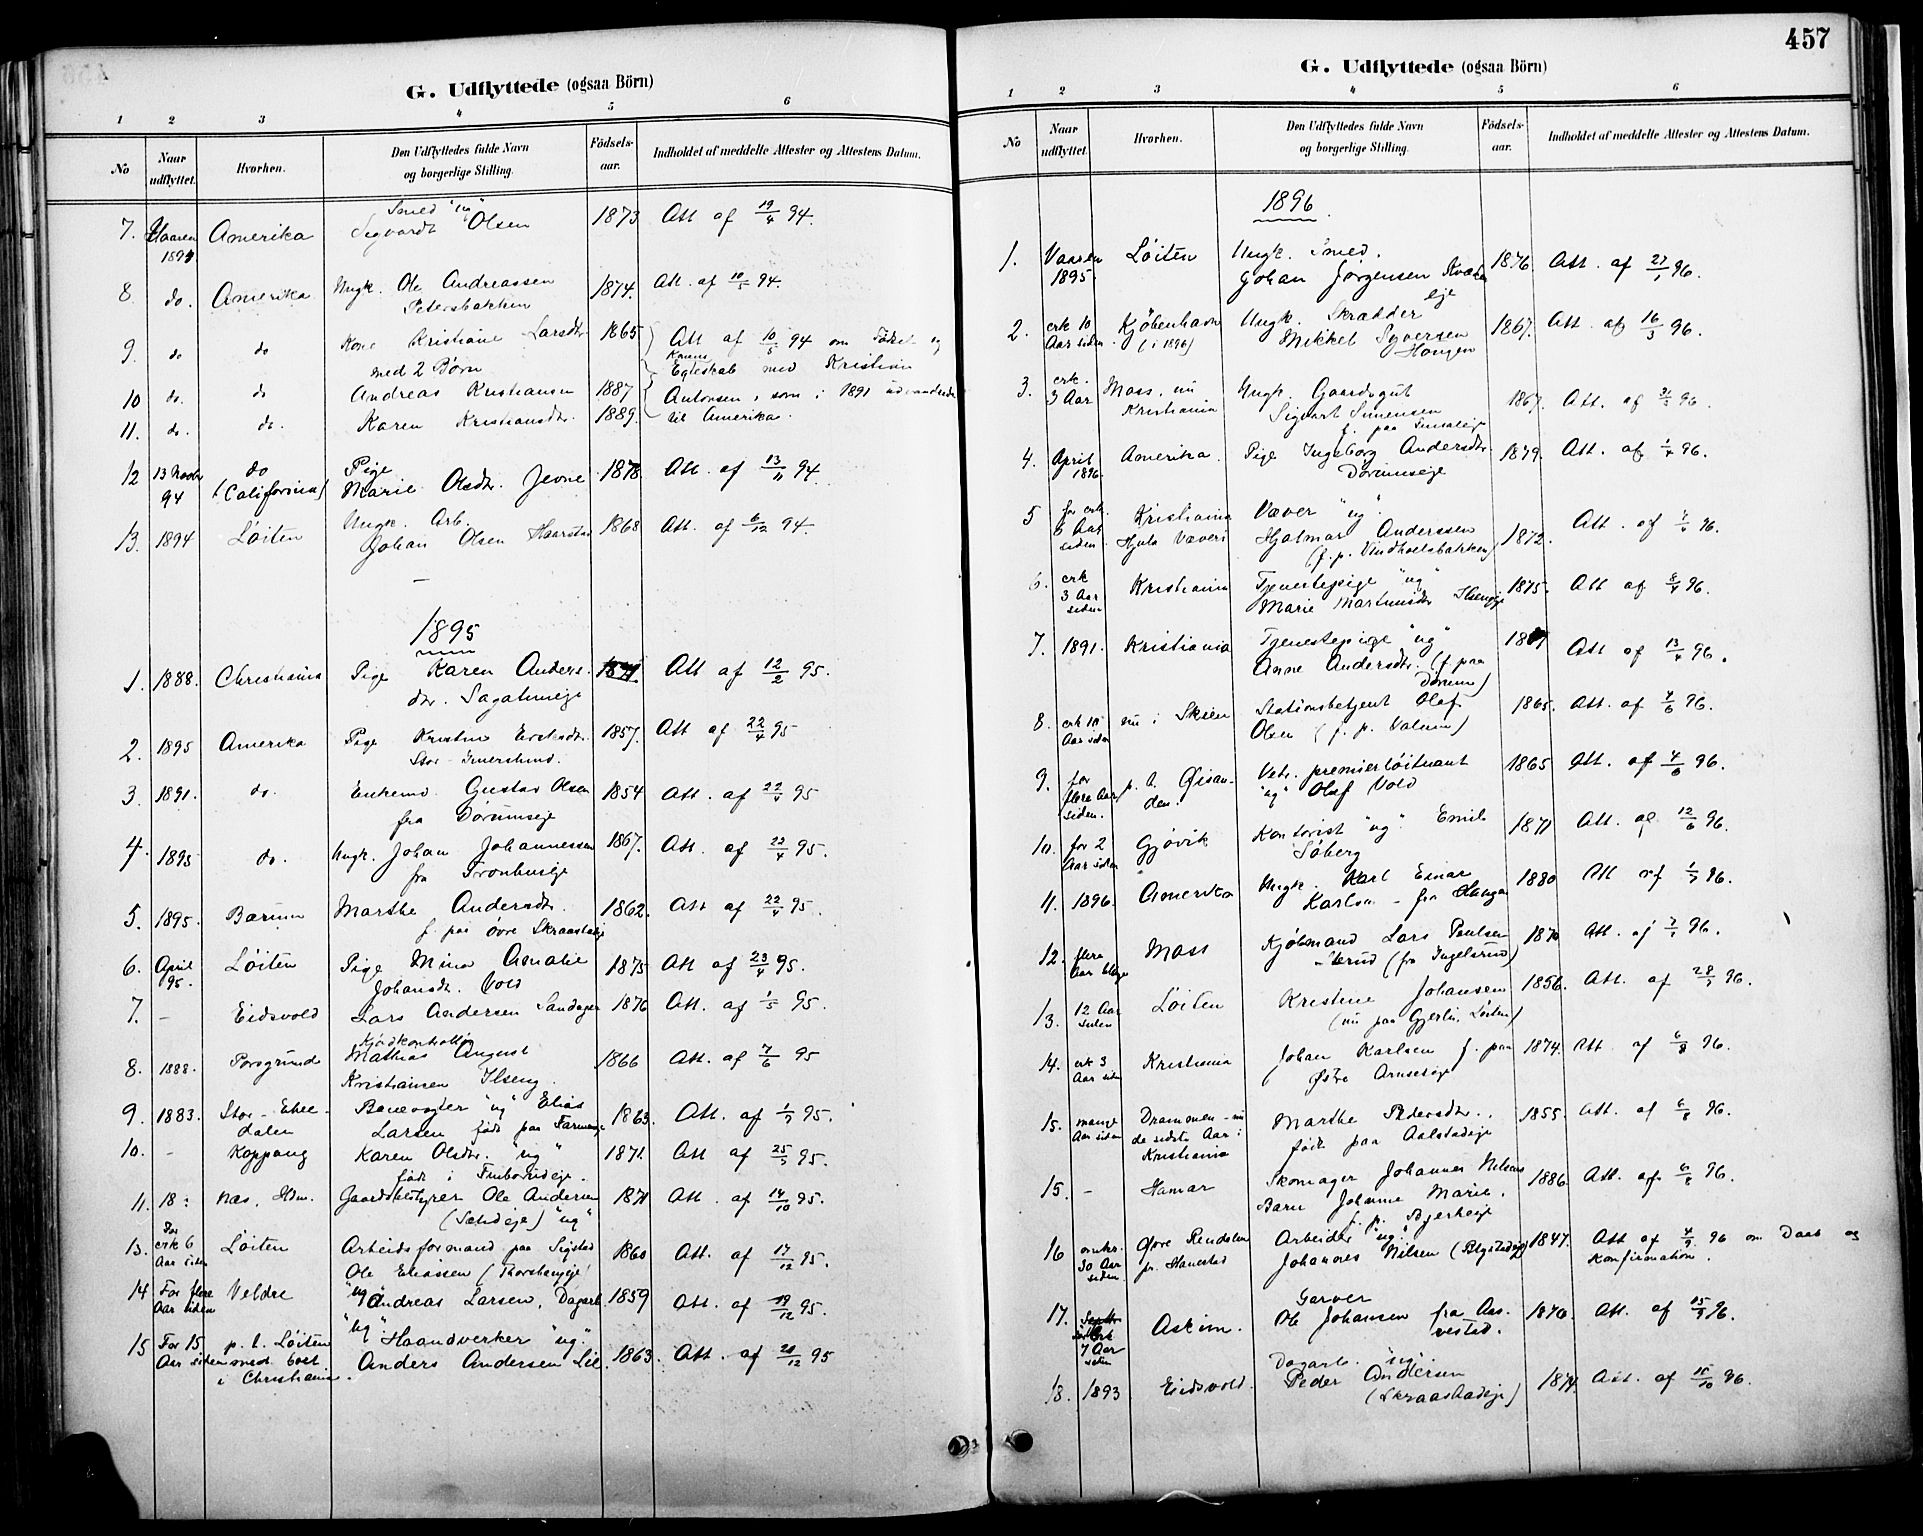 G. Udflyttede (ogsaa Börn)
1 2 3 4 5 6
No
Naar udflyttet.
Hvorhen.
Den Udflyttedes fulde Navn og borgerlige Stilling.
Fødsels-aar.
Indholdet af meddelte Attester og Attestens Datum.
7. Vaaren 1894 Amerika Smed "ug" Sigvardt Olsen 1873 Att af 19/4 94.
8 do. Amerika Ungk. Ole Andreassen Petersbakken 1874. Att. af 10/5 94.
9. do do Kone Kristiane Larsdtr. med 2 Børn 1865 Att af 10/5 94 om Fødsel og
Egteskab med Kristian
10 do. do Andreas Kristiansen 1887 Antonsen, som i 1891 udvandrede
11. do. do. Karen Kristiansdtr. 1889. til Amerika.
12 13 Novbr 94 do (California) Pige Marie Olsdtr. Jevne 1878. Att. af 13/11 94.
13. 1894 Løiten Ungk. Arb. Johan Olsen Haarstad 1868 Att. af 6/12 94.
1895
1. 1888. Christiania Pige Karen Andersdtr. Sagatuneje 1871. Att af 12/2 95.
2. 1895 Amerika Pige Kristine 1857. Att af 22/4 95
3. 1891. do. Enkemd. Gustav Olsen fra Dørumseje 1854 Att. af 22/4 95
4. 1895 do. Ungk. Johan Johannessen fra 1867. Att. af 22/4 95.
5. 1895. Bærum Marthe Andersdtr. f. paa øvre Skraastadeje 1862. Att af 22/4 95.
6. April 95. Løiten Pige Mina Amalie Johansdt. Vold 1875 Att af 23/4 95.
7. – Eidsvold Lars Andersen Sandager 1876 Att. af 1/5 95.
8. 1888. Porsgrund Mathias August Kristiansen Ilseng. 1866 Att. af 7/6 95
9. 1883. Stor-Elvedalen Banevogter "ug" Elias Larsen født paa 1863. Att. af 1/7 95.
10. – Koppang Karen Olsdtr. "ug" født i 1871. Att af 25/7 95.
11. 18 : Næs, Hdm. Gaardsbestyrer Ole Andersen "ug" 1871 Att. af 14/10 95.
13. For crk 6 Aar siden Løiten Arbeidsformand paa Sigstad Ole Eliassen 1860 Att. af 17/12 95.
14 For flere Aar siden Veldre "ug" Andreas Larsen, Dagarb. 1859 Att. af 19/12 95.
15 For 15 Aar siden p. t. Løiten med bost. i Christiania. "ug" Haandverker "ug". Anders Andersen Lie. 1863. Att. af 20/12 95
457
G. Udflyttede (ogsaa Börn)
1 2 3 4 5 6
No
Naar udflyttet.
Hvorhen.
Den Udflyttedes fulde Navn og borgerlige Stilling.
Fødsels-aar.
Indholdet af meddelte Attester og Attestens Datum.
1896
1. Vaaren 1895. Løiten Ungk. Smed. Johan Jørgensen 1876. Att. af 27/1 96.
2. crk 10 Aar siden. Kjøbenhavn (i 1896) Ungk. Skrædder Mikkel Syversen Haugen 1867. Att. af 16/3 96.
3. crk. 3 Aar Moss, nu Kristiania Ungk. Gaardsgut Sigvart Simensen 1867. Att. af 31/3 96.
4. April 1896. Amerika. Pige Ingeborg Andersdtr. Dørumseje 1879. Att. af 1/4 96.
5 for crk. 6 Aar siden. Kristiania Hjula Væveri Væver "ug". Hjalmar Anderssen (f. p. Vindhoelsbakken) 1872. Att. af 7/4 96.
6. crk 3 Aar siden Kristiania Tjenestepige "ug" Marie Martinusdtr. 1875. Att af 8/4 96.
7. 1891. Kristiania Tjenestepige "ug" Anne Andersdtr. (f. paa Dørum) Att af 13/4 96.
8. crk 10 Aar siden nu i Skien Stationsbetjent Olaf Olsen (f. p. Valum) 1865. Att. af 4/6 96.
9. for flere Aar siden. p. t. Vetr. premierløitnant "ug" Olaf Vold 1865 Att. af 4/6 96.
10. for 2 Aar siden Gjøvik Kontorist "ug". Emil Søberg 1871 Att. af 12/6 96.
11. 1896. Amerika Ungk. Karl Einar Karlsen – fra Haugen 1880 Att af 1/7 96.
12. flere Aar Moss Kjøbmand Lars Paulsen (fra Ingelsrud) 1870 Att. af 7/7 96.
13. 12 Aar siden Løiten Kristine Johansen (nu paa Gjerlu, Løiten) 1856. Att. af 28/7 96.
14. crk 3 Aar siden Kristiania Johan Karlsen f. paa Østre Arnseteje 1874. Att af 6/8 96.
15. mange Aar siden Drammen – nu de sidste Aar i Kristiania Marthe Pedersdtr.. født paa Aalstadeje 1855. Att. af 6/8 96.
15. – Hamar Skomager Johannes Nilsens Barn Johanne Marie. f. p. Bjerkeeje 1886. Att. af 6/8 96.
16 omkr. 30 Aar siden. Øvre Rendalen pr. Hanestad Arbeider "ug". Johannes Nilsen 1847. Att af 4/9 96 om Daab og Konfirmation.
17. crk 7 Aar siden Askim. Garver Ole Johansen fra Aasvestad. 1870. Att. af 15/9 96.
18. 1893 Eidsvold. Dagarb. "ug". Peder Andersen (Skraastadeje) 1874. Att. af 15/10 96.